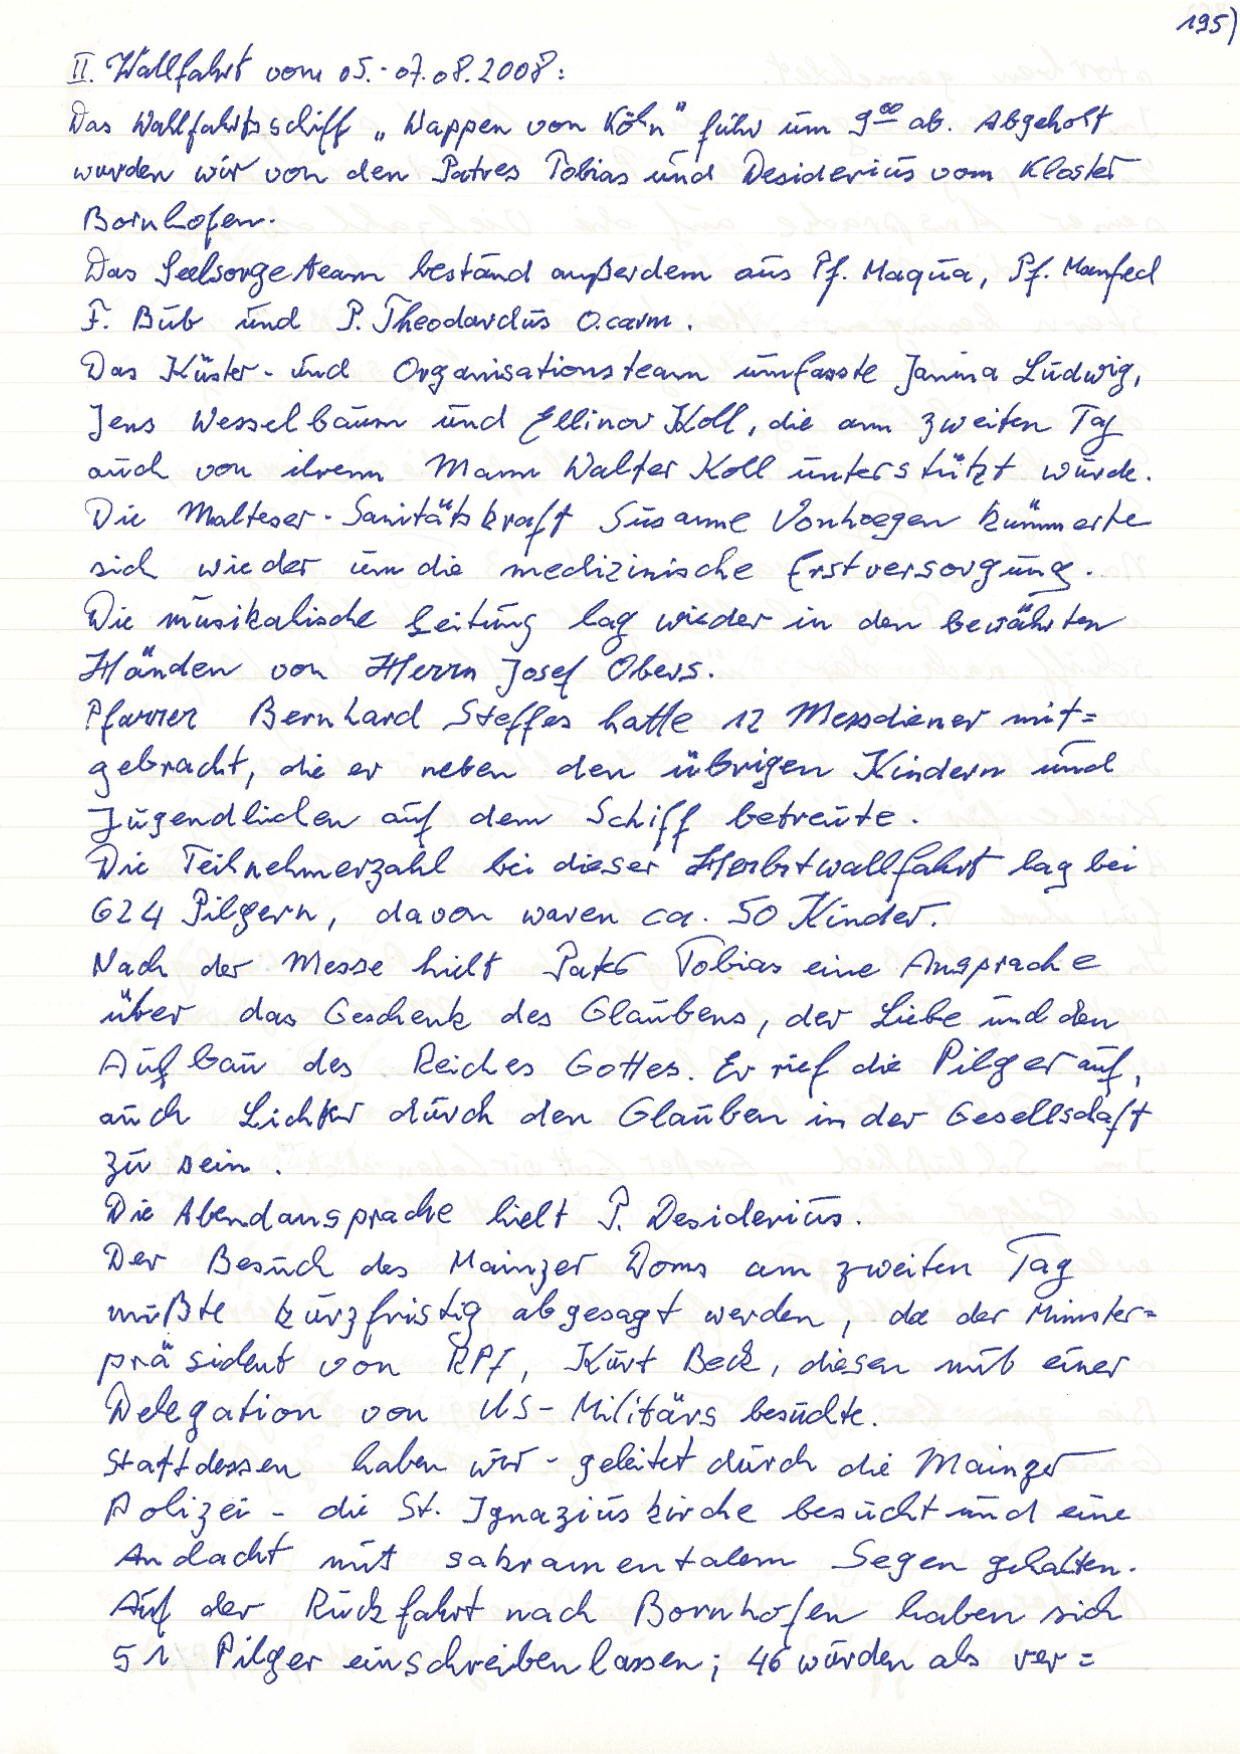 195)
II. Wallfahrt vom 05.-07.08.2008:
Das Wallfahrtsschiff „Wappen von Köln" fuhr um 9⁰⁰ ab. Abgeholt
wurden wir von den Patres Tobias und Desiderius vom Kloster
Bornhofen.
Das Seelsorgeteam bestand außerdem aus Pf. Maqua, Pf. Manfed
F. Bub und P. Theodardus O.carm.
Das Küster- und Organisationsteam umfasste Janina Ludwig,
Jens Wesselbaum und Ellinor Koll, die am zweiten Tag
auch von ihrem Mann Walter Koll unterstützt wurde.
Die Malteser-Sanitätskraft Susanne Vonhoegen kümmerte
sich wieder um die medizinische Erstversorgung.
Die musikalische Leitung lag wieder in den bewährten
Händen von Herrn Josef Obers.
Pfarrer Bernhard Steffes hatte 12 Messdiener mit=
gebracht, die er neben den übrigen Kindern und
Jugendlichen auf dem Schiff betreute.
Die Teilnehmerzahl bei dieser Herbstwallfahrt lag bei
624 Pilgern, davon waren ca. 50 Kinder.
Nach der Messe hielt Pater Tobias eine Ansprache
über das Geschenk des Glaubens, der Liebe und den
Aufbau des Reiches Gottes. Er rief die Pilger auf,
auch Lichter durch den Glauben in der Gesellschaft
zu sein.
Die Abendansprache hielt P. Desiderius.
Der Besuch des Mainzer Doms am zweiten Tag
mußte kurzfristig abgesagt werden, da der Minster=
präsident von RPf, Kurt Beck, diesen mit einer
Delegation von US-Militärs besuchte.
Stattdessen haben wir - geleitet durch die Mainzer
Polizei - die St. Ignaziuskirche besucht und eine
Andacht mit sakramentalem Segen gehalten.
Auf der Rückfahrt nach Bornhofen haben sich
51 Pilger einschreiben lassen; 46 wurden als ver=